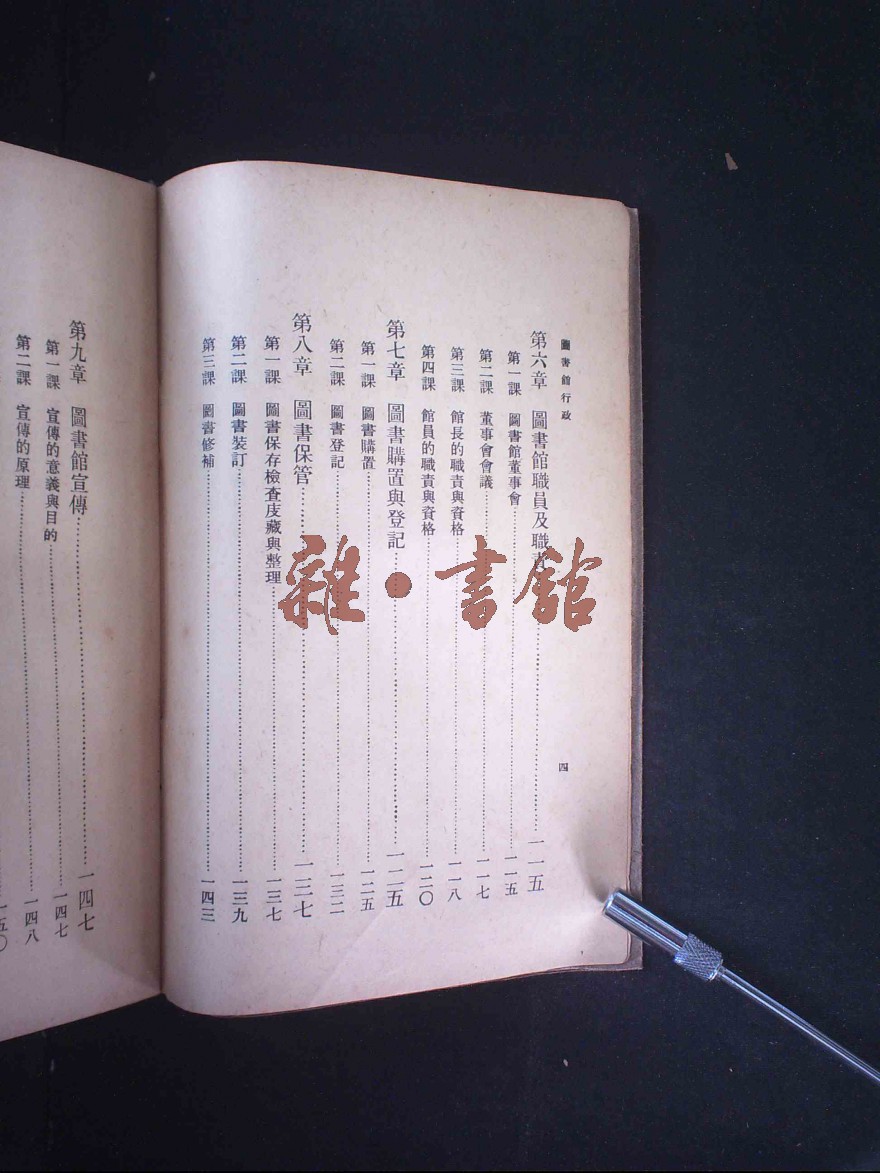 圖書館行政
四
第六章 圖書館職員及職責……一一五
第一課 圖書館董事會……一一五
第二課 董事會會議……一一七
第三課 館長的職責與資格……一一八
第四課 館員的職責與資格……一二〇
第七章 圖書購置與登記……一二五
第一課 圖書購置……一二五
第二課 圖書登記……一三二
第八章 圖書保管……一二七
第一課 圖書保存檢查庋藏與整理……一三七
第二課 圖書裝訂……一三九
第三課 圖書修補……一四三
第九章 圖書館宣傳……一四七
第一課 宣傳的意義與目的……一四七
第二課 宣傳的原理……一四八
一五〇
雜·書館